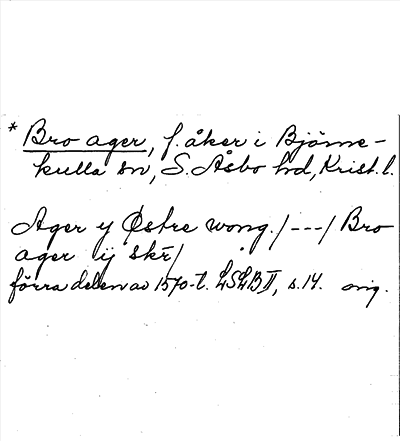 * Bro ager, f. åker i Björne-
kulla sn, S. Åsbo hd, Krist. l.
Ager y Østre wong./---/ Bro
ager ij skr̄/
förra delen av 1570-t. LSLB II, s. 14. orig.